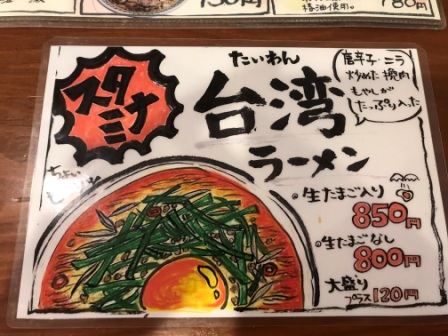 750円
格油使用。
780円
スタミナ
たいわん
台湾
ラーメン
唐辛子・ニラ
炒めた挽肉
もやしが
たっぷり入った
ちょい
生たまご入り
850円
生たまごなし
800円
大盛り
プラス120円